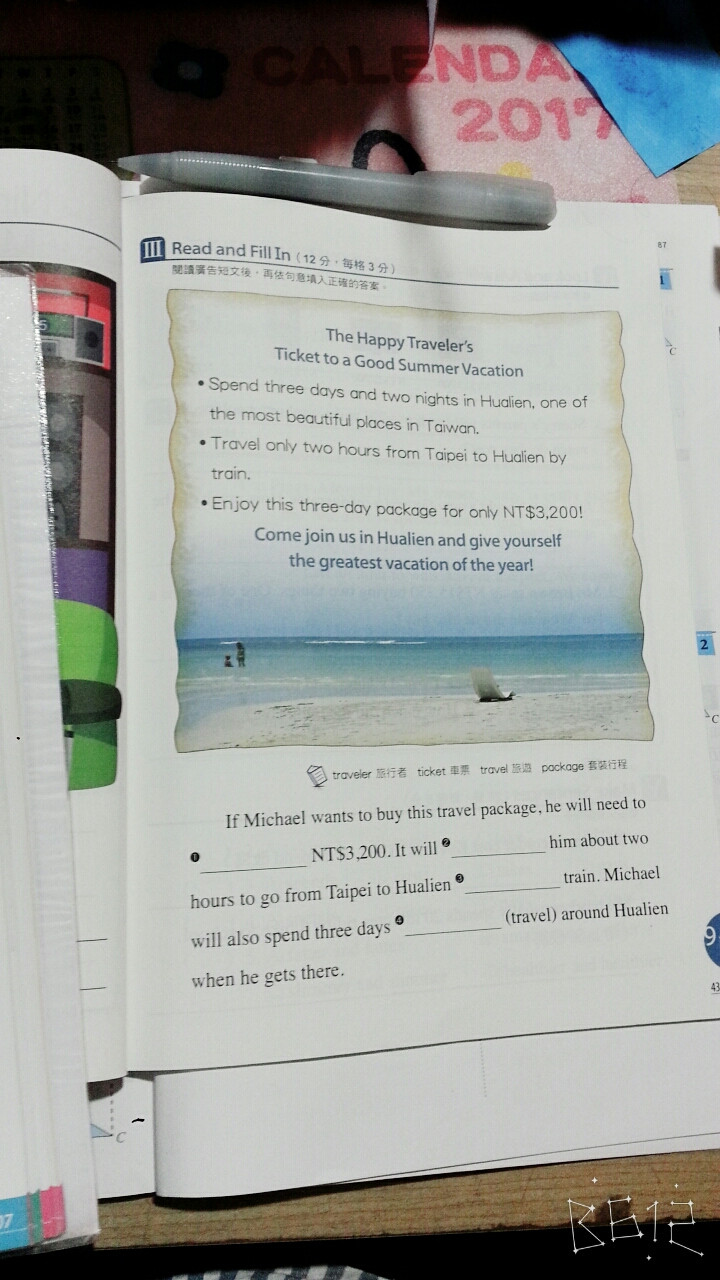 CALENDA
2017
III Read and Fill In (12 分,每格 3 分)
閱讀廣告短文後,再依句意填入正確的答案。
87
1
C
The Happy Traveler's
Ticket to a Good Summer Vacation
• Spend three days and two nights in Hualien, one of
the most beautiful places in Taiwan.
• Travel only two hours from Taipei to Hualien by
train.
• Enjoy this three-day package for only NT$3,200!
Come join us in Hualien and give yourself
the greatest vacation of the year!
2
C
traveler 旅行者 ticket 車票 travel 旅遊 package 套裝行程
If Michael wants to buy this travel package, he will need to
❶ __________ NT$3,200. It will ❷ __________ him about two
hours to go from Taipei to Hualien ❸ __________ train. Michael
will also spend three days ❹ __________ (travel) around Hualien
when he gets there.
9
43
C
97
B612